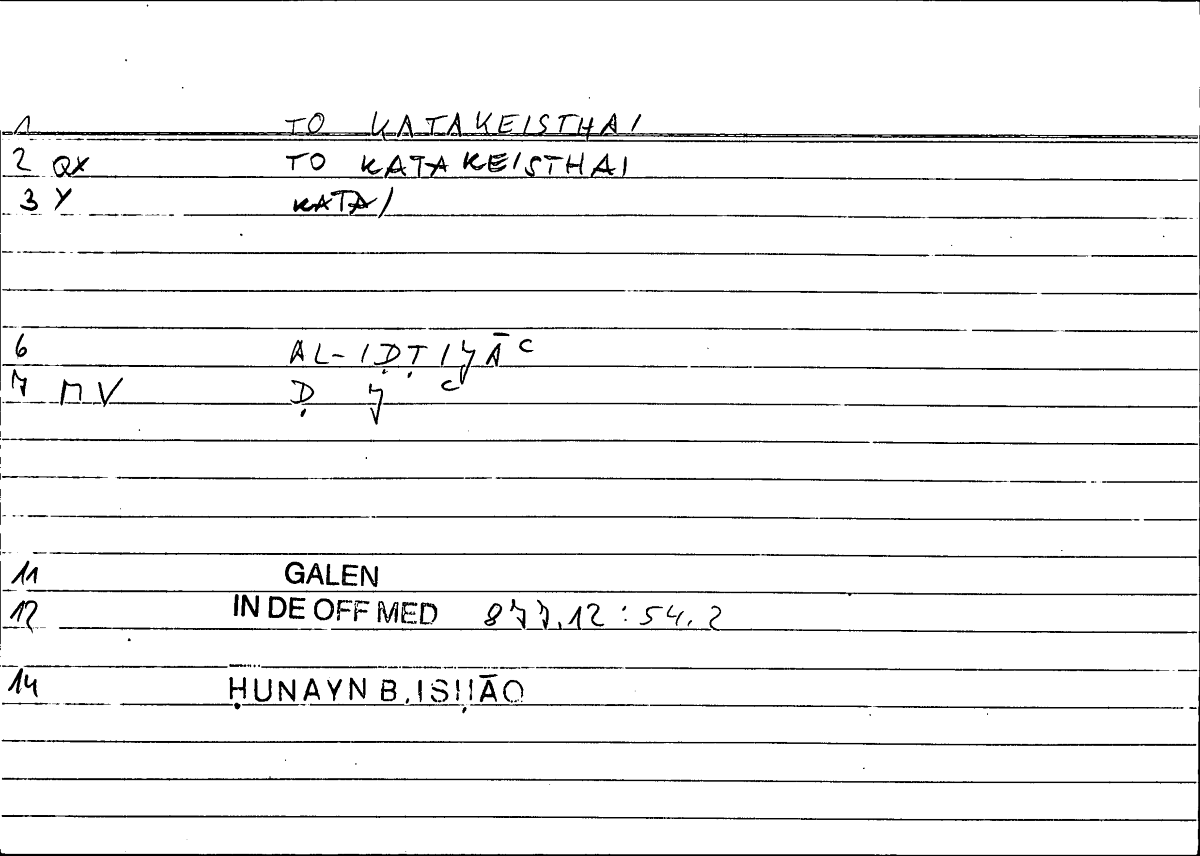 1 TO KATAKEISTHAI
2 QX TO KATAKEISTHAI
3 Y KATA/
6 AL-IḌṬIJĀ c
7 NV Ḍ J c
11 GALEN
12 IN DE OFF MED 877.12 : 54.2
14 ḤUNAYN B. ISḤĀQ